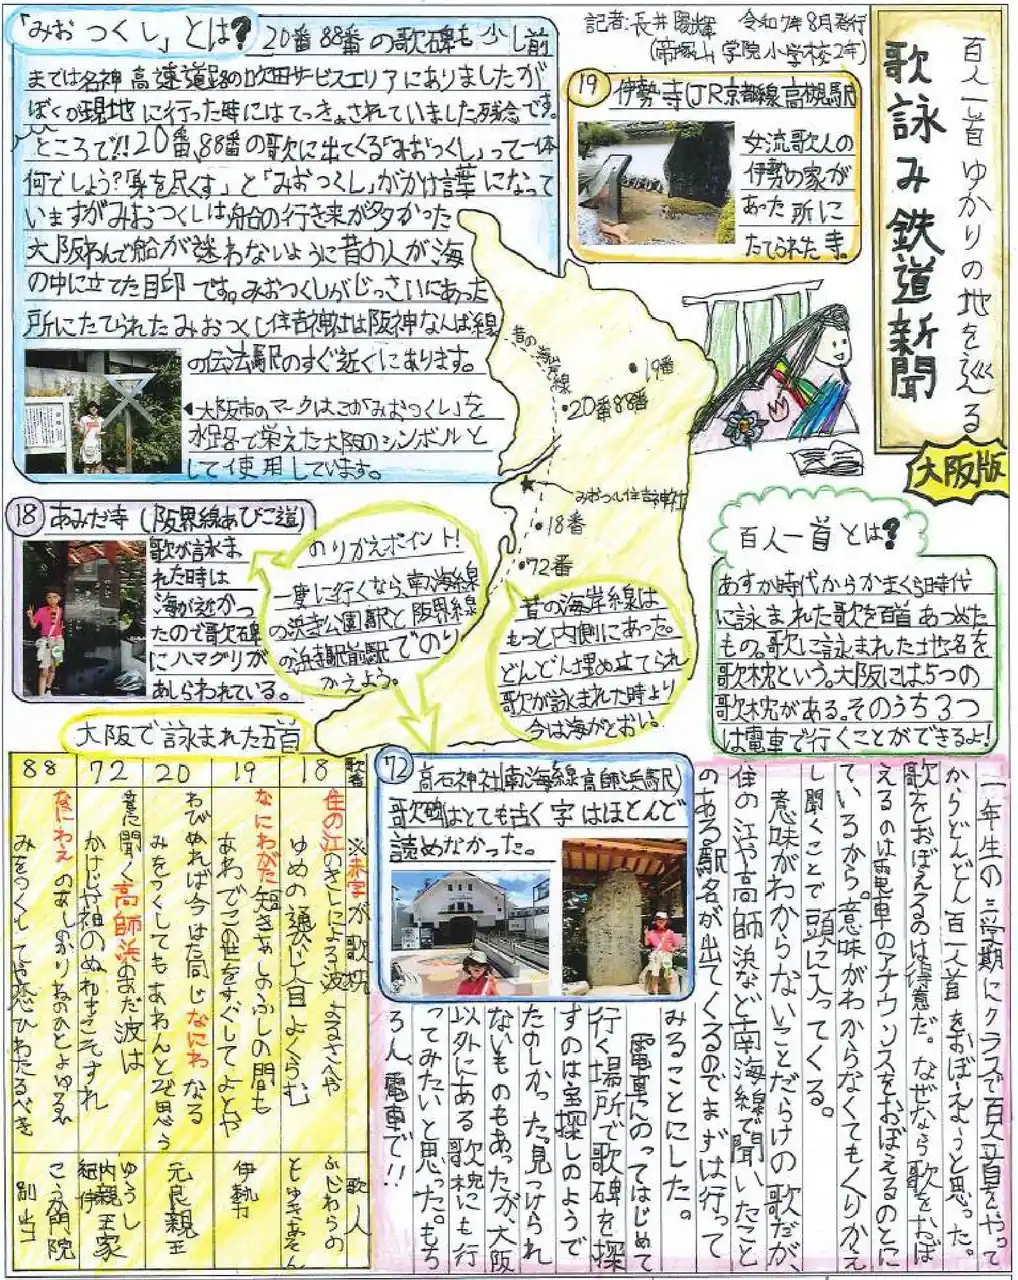 百人一首ゆかりの地を巡る
歌詠み鉄道新聞
大阪版
記者:長井陽輝 令和7年8月発行
(帝塚山学院小学校2年)
「みおつくし」とは?
20番88番の歌碑も少し前
までは名神高速道路の吹田サービスエリアにありましたが
ぼくが現地に行った時にはてっきょされていました残念です。
ところで!!20番、88番の歌に出てくる「みおつくし」って一体
何でしょう?「身を尽くす」と「みおつくし」がかけ言葉になって
いますがみおつくしは船の行き来が多かった
大阪わんで船が迷わないように昔の人が海
の中に立てた目印です。みおつくしがじっさいにあった
所にたてられたみおつくし住吉神社は阪神なんば線
の伝法駅のすぐ近くにあります。
◀大阪市のマークはこの「みおつくし」を
水路で栄えた大阪のシンボルと
して使用しています。
19 伊勢寺(JR京都線高槻駅)
女流歌人の
伊勢の家が
あった所に
たてられた寺。
昔の海岸線
19番
20番88番
みおつくし住吉神社
18番
72番
18 あみだ寺(阪界線あびこ道)
歌が詠ま
れた時は
海が近かっ
たので歌石碑
にハマグリが
あしらわれている。
のりかえポイント!
一度に行くなら、南海線
の浜寺公園駅と阪界線
の浜寺駅前駅でのり
かえよう。
昔の海岸線は
もっと内側にあった。
どんどん埋め立てられ
歌が詠まれた時より
今は海がとおい。
百人一首とは?
あすか時代からかまくら時代
に詠まれた歌を百首あつめた
もの。歌に詠まれた地名を
歌枕という。大阪には5つの
歌枕がある。そのうち3つ
は電車で行くことができるよ!
72 高石神社(南海線高師浜駅)
歌碑はとても古く字はほとんど
読めなかった。
大阪で詠まれた五首
歌番 18 19 20 72 88
※赤字が歌枕
住の江のきしによる波よるさへや
ゆめの通ひじ人目よくらむ
なにわがた短きあしのふしの間も
あわでこの世をすぐしてよとや
わびぬれば今はた同じなにわなる
みをつくしてもあわんとぞ思う
音に聞く高師浜のあだ波は
かけじや袖のぬれもこそすれ
なにわえのあしのかりねのひとよゆえ
みをつくしてや恋ひわたるべき
歌人
ふじわらの
としゆきあそん
伊勢
元良親王
ゆうし
内親王家
紀伊
こうか門院
別当
一年生の三学期にクラスで百人一首をやって
からどんどん百人一首をおぼえようと思った。
歌をおぼえるのは得意だ。なぜなら歌をおぼ
えるのは電車のアナウンスをおぼえるのとに
ているから。意味がわからなくてもくりかえ
し聞くことで頭に入ってくる。
意味がわからないことだらけの歌だが、
住の江や高師浜など南海線で聞いたこと
のある駅名が出てくるのでまずは行って
みることにした。
電車にのってはじめて
行く場所で歌碑を探
すのは宝探しのようで
たのしかった。見つけられ
ないものもあったが、大阪
以外にある歌枕にも行
ってみたいと思った。もち
ろん、電車で!!